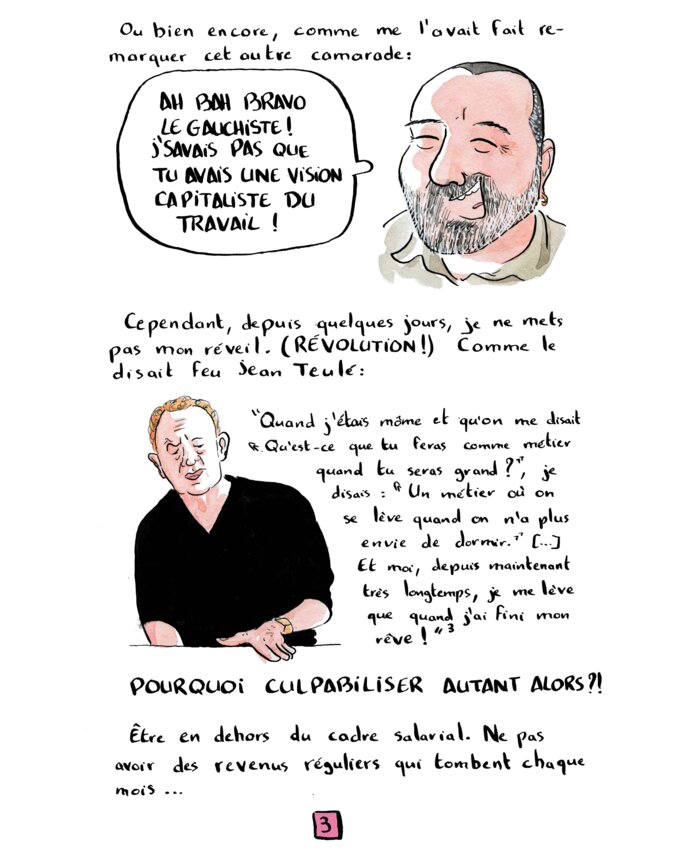 Ou bien encore, comme me l'avait fait re-
marquer cet autre camarade:
AH BAH BRAVO
LE GAUCHISTE!
J'SAVAIS PAS QUE
TU AVAIS UNE VISION
CAPITALISTE DU
TRAVAIL !
Cependant, depuis quelques jours, je ne mets
pas mon réveil. (RÉVOLUTION!) Comme le
disait feu Jean Teulé:
"Quand j'étais môme et qu'on me disait
"Qu'est-ce que tu feras comme métier
quand tu seras grand?", je
disais : "Un métier où on
se lève quand on n'a plus
envie de dormir." [...]
Et moi, depuis maintenant
très longtemps, je me lève
que quand j'ai fini mon
rêve ! "3
POURQUOI CULPABILISER AUTANT ALORS?!
Être en dehors du cadre salarial. Ne pas
avoir des revenus réguliers qui tombent chaque
mois ...
3